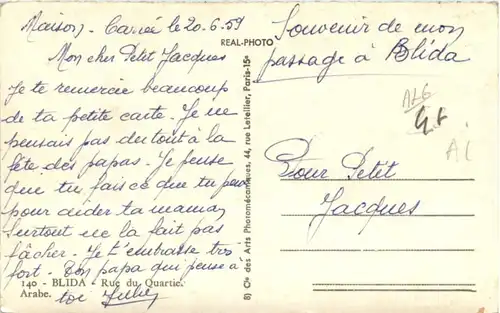 Maison-Carrée le 20.6.59
Mon cher Petit Jacques
Je te remercie beaucoup
de ta petite carte. Je ne
pensais pas du tout à la
fête des papas. Je pense
que tu fais ce que tu peux
pour aider ta maman
Surtout ne la fait pas
fâcher. Je t'embrasse très
fort. Ton papa qui pense à
toi
140 - BLIDA - Rue du Quartier
Arabe.
REAL-PHOTO
8) Cie des Arts Photomécaniques, 44, rue Letellier, Paris-15e
Souvenir de mon
passage à Blida
ALG
Pour Petit
Jacques